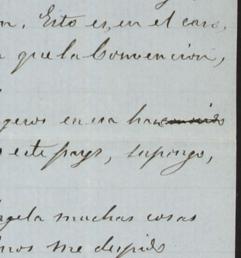 Esto es, en el caso,
que la Convencion,
geros en esa
este pays, supongo,
muchas cosas
me despido